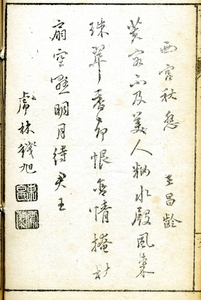 西宮秋怨
王昌齡
芙蓉不及美人粧水殿風來
珠翠香却恨含情掩秋
扇空懸明月待君王
虎林
旭